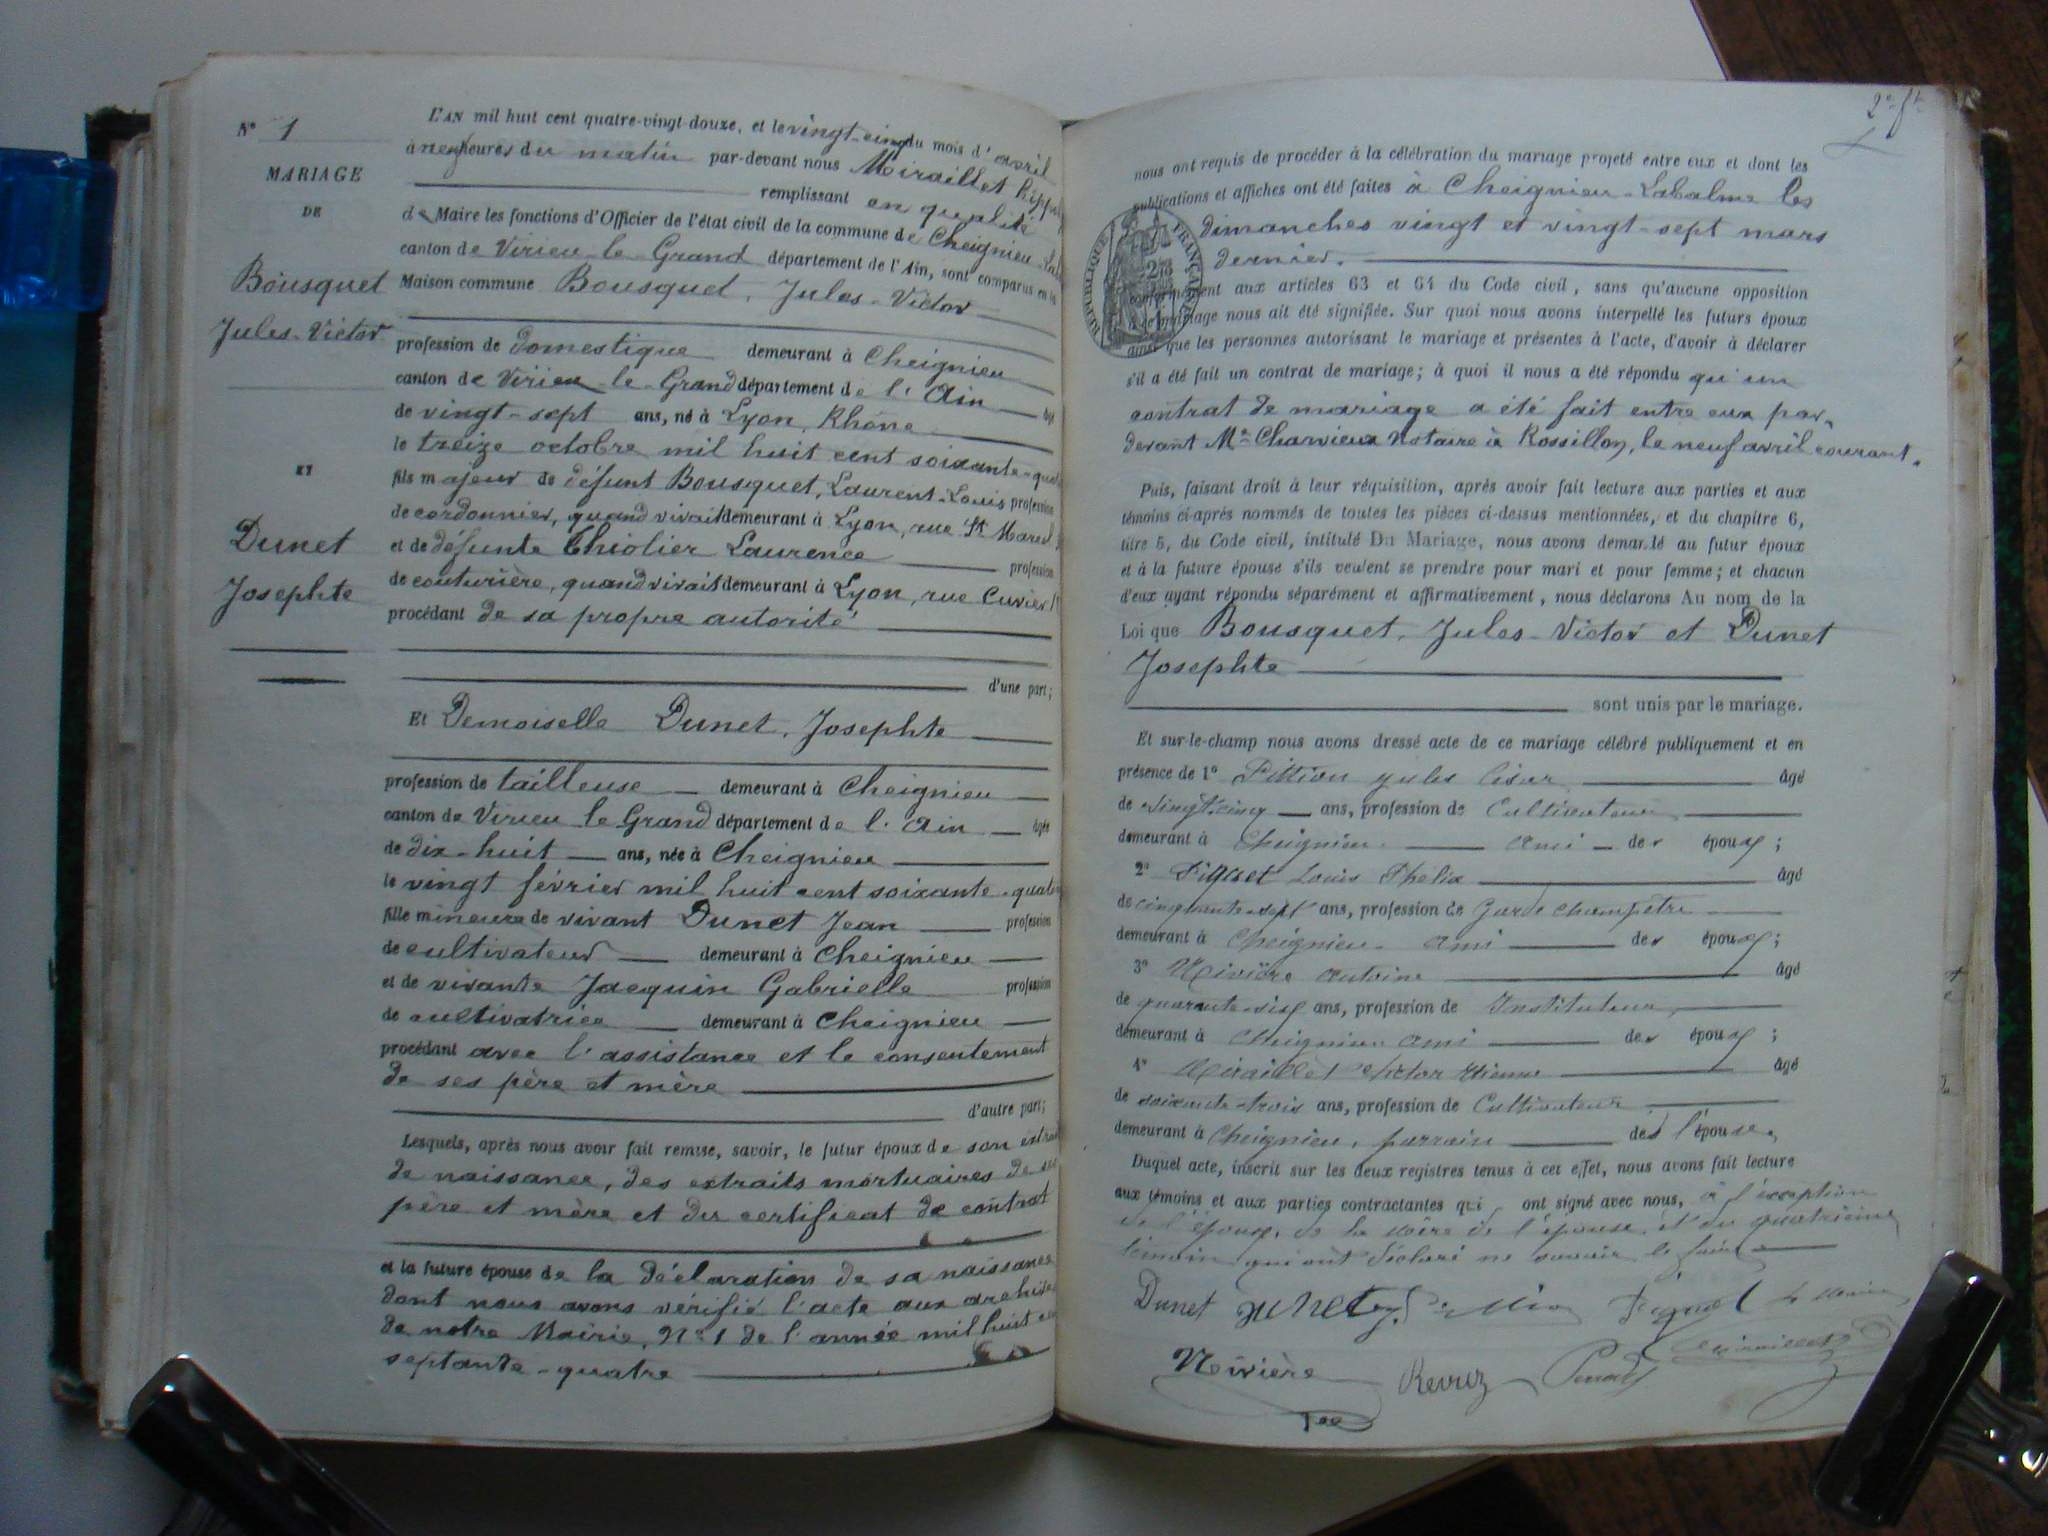 N° 1
MARIAGE
DE
Bousquet
Jules-Victor
ET
Dunet
Josephte
L'AN mil huit cent quatre-vingt-douze, et le vingt-cinq du mois d'avril
à neuf heures du matin par-devant nous Miraillet
remplissant en qualité
de Maire les fonctions d'Officier de l'état civil de la commune de Cheignieu
canton de Virieu-le-Grand département de l'Ain, sont comparus en la
Maison commune Bousquet, Jules-Victor
profession de domestique demeurant à Cheignieu
canton de Virieu-le-Grand département de l'Ain âgé
de vingt-sept ans, né à Lyon, Rhône
le treize octobre mil huit cent soixante-
fils majeur de défunt Bousquet, Laurent-Louis profession
de cordonnier, quand vivait demeurant à Lyon, rue St Marcel
et de défunte Thiolier Laurence profession
de couturière, quand vivait demeurant à Lyon, rue Cuvier
procédant de sa propre autorité
d'une part;
Et Demoiselle Dunet, Josephte
profession de tailleuse demeurant à Cheignieu
canton de Virieu le Grand département de l'Ain âgée
de dix-huit ans, née à Cheignieu
le vingt février mil huit cent soixante-
fille mineure de vivant Dunet Jean profession
de cultivateur demeurant à Cheignieu
et de vivante Jacquin Gabrielle profession
de cultivatrice demeurant à Cheignieu
procédant avec l'assistance et le consentement
de ses père et mère
d'autre part;
Lesquels, après nous avoir fait remise, savoir, le futur époux de son extrait
de naissance, des extraits mortuaires de ses
père et mère et du certificat de contrat
et la future épouse de la déclaration de sa naissance
dont nous avons vérifié l'acte aux archives
de notre Mairie, N° 1 de l'année mil huit cent
septante-quatre
2e ft
nous ont requis de procéder à la célébration du mariage projeté entre eux et dont les
publications et affiches ont été faites à Cheignieu-Labalme les
dimanches vingt et vingt-sept mars
dernier.
RÉPUBLIQUE FRANÇAISE
conformément aux articles 63 et 64 du Code civil, sans qu'aucune opposition
à ce mariage nous ait été signifiée. Sur quoi nous avons interpellé les futurs époux
ainsi que les personnes autorisant le mariage et présentes à l'acte, d'avoir à déclarer
s'il a été fait un contrat de mariage; à quoi il nous a été répondu qu'un
contrat de mariage a été fait entre eux par-
devant Me Charvieux Notaire à Rossillon, le neuf avril courant.
Puis, faisant droit à leur réquisition, après avoir fait lecture aux parties et aux
témoins ci-après nommés de toutes les pièces ci-dessus mentionnées, et du chapitre 6,
titre 5, du Code civil, intitulé Du Mariage, nous avons demandé au futur époux
et à la future épouse s'ils veulent se prendre pour mari et pour femme; et chacun
d'eux ayant répondu séparément et affirmativement, nous déclarons Au nom de la
Loi que Bousquet, Jules-Victor et Dunet
Josephte
sont unis par le mariage.
Et sur-le-champ nous avons dressé acte de ce mariage célébré publiquement et en
présence de 1° Pittion Jules César âgé
de vingt-cinq ans, profession de Cultivateur
demeurant à Cheignieu ami des époux;
2° Louis Phelix âgé
de cinquante-sept ans, profession de Garde champêtre
demeurant à Cheignieu ami des époux;
3° Nivière Antoine âgé
de quarante-six ans, profession de Instituteur
demeurant à Cheignieu ami des époux;
4° Miraillet âgé
de soixante-trois ans, profession de Cultivateur
demeurant à Cheignieu, parrain de l'épouse.
Duquel acte, inscrit sur les deux registres tenus à cet effet, nous avons fait lecture
aux témoins et aux parties contractantes qui ont signé avec nous, à l'exception
de l'époux, de la mère de l'épouse et du quatrième
témoin qui ont déclaré ne savoir le faire
Dunet Le Maire
Nivière